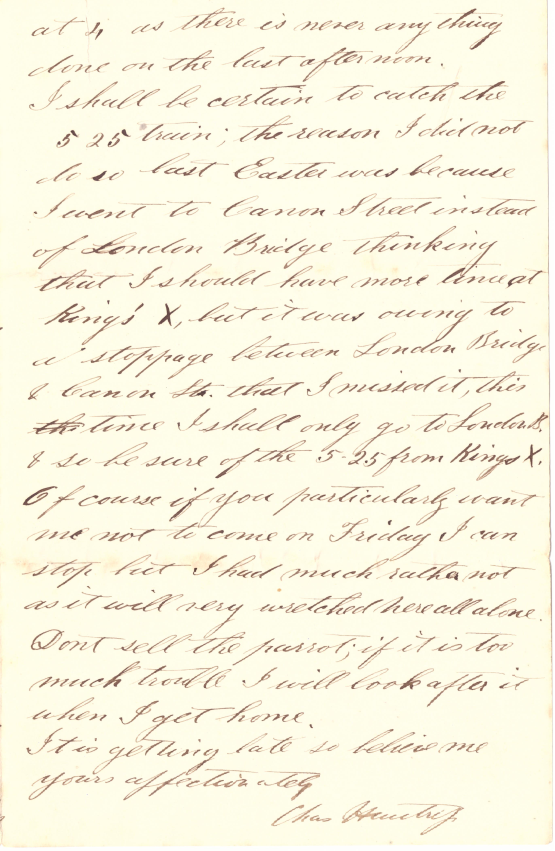 at 4 as there is never any thing
done on the last afternoon.
I shall be certain to catch the
5 25 train; the reason I did not
do so last Easter was because
I went to Canon Street instead
of London Bridge thinking
that I should have more time at
King's X, but it was owing to
a stoppage between London Bridge
& Canon St. that I missed it, this
time I shall only go to London B.
& so be sure of the 5-25 from Kings X.
Of course if you particularly want
me not to come on Friday I can
stop but I had much rather not
as it will very wretched here all alone.
Dont sell the parrot; if it is too
much trouble I will look after it
when I get home.
It is getting late so believe me
yours affectionately
Chas